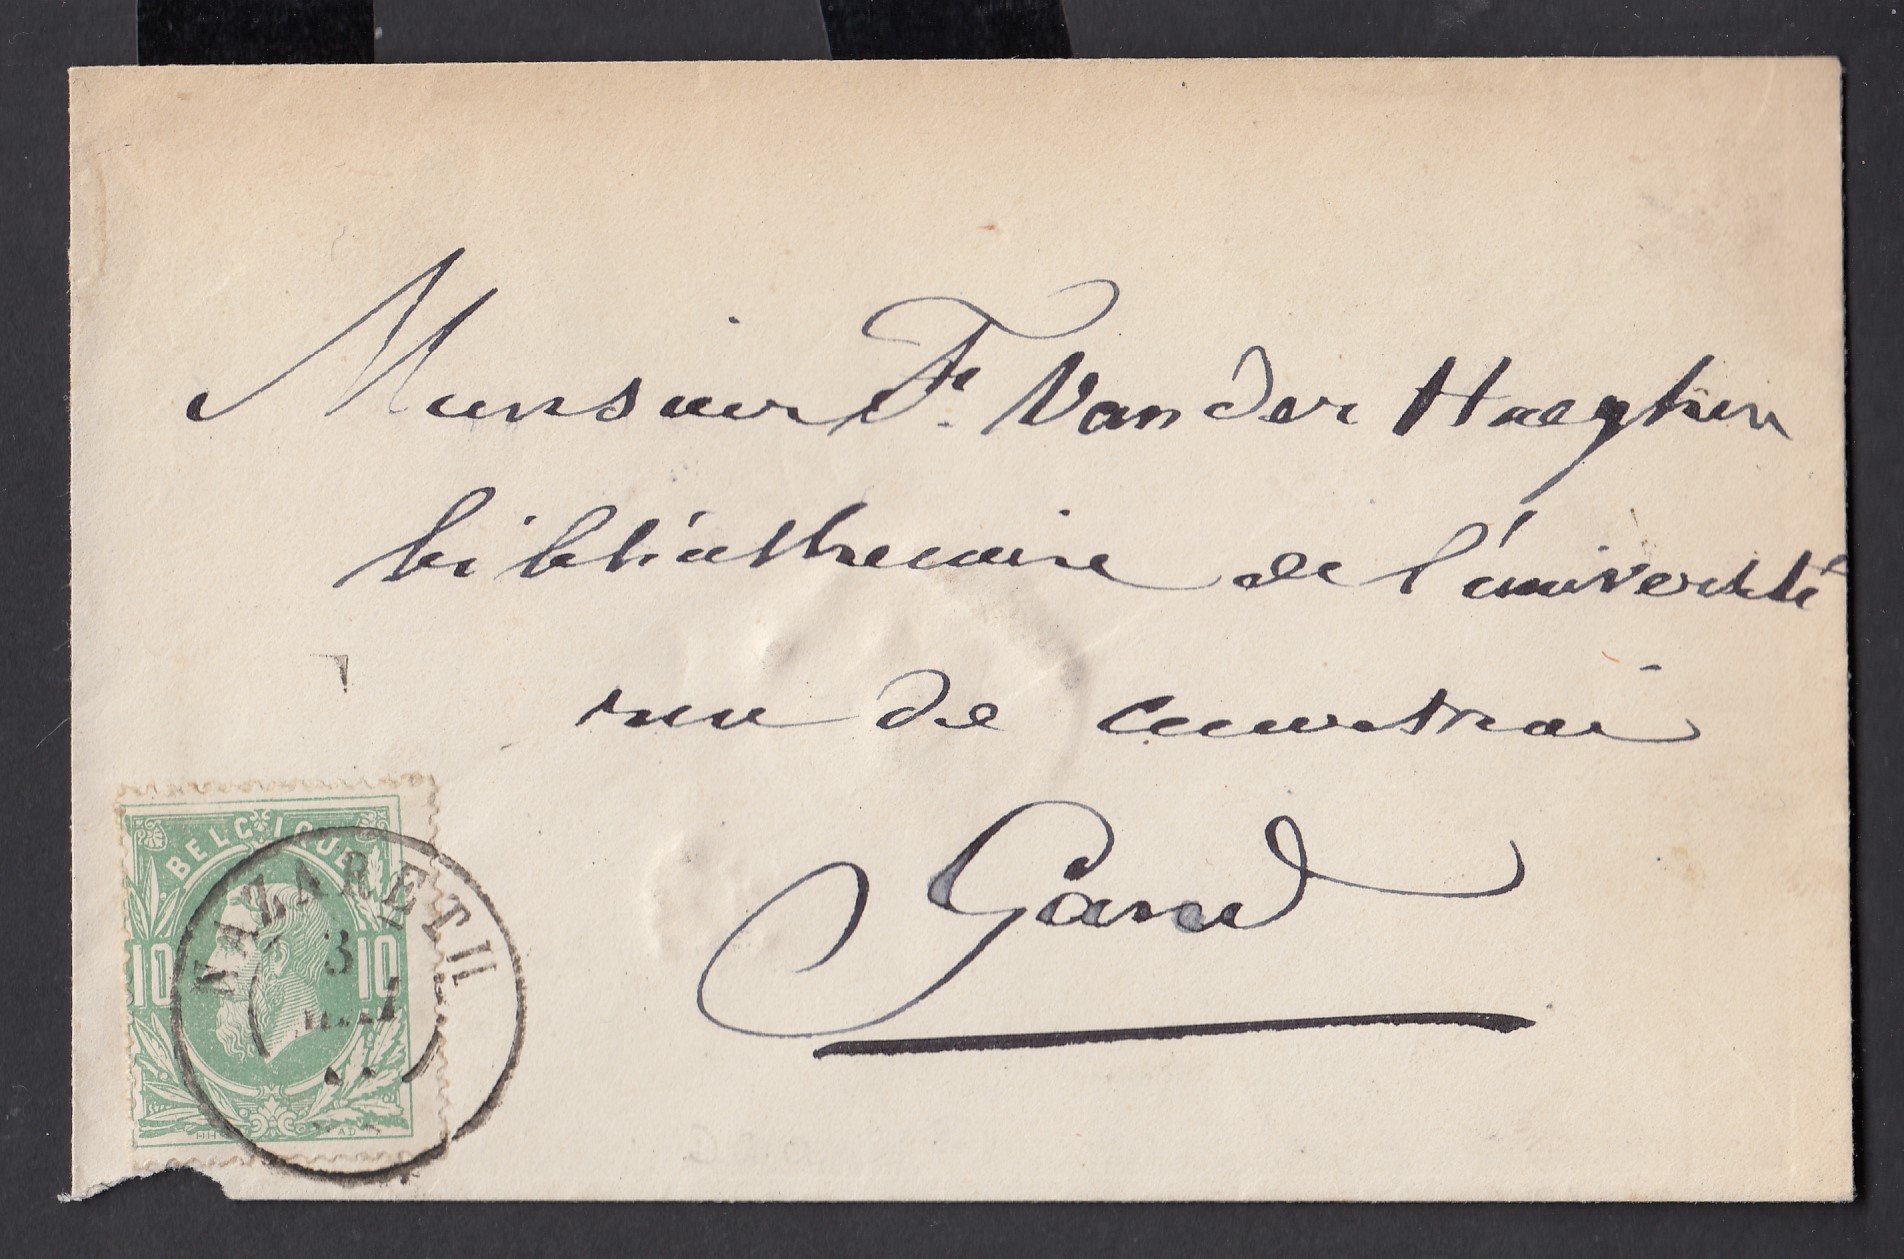 Monsieur F. Vander Haeghen
bibliothecaire de l'université
rue de courtrai
Gand
BELGIQUE
NAZARETH
3
10 10
HH AD